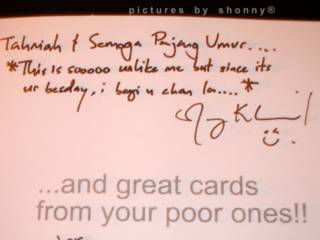 pictures by shonny®
Tahniah & Semoga Panjang Umur....
*This is sooooo unlike me but since its
ur besday, i bagi u chan la....*
...and great cards
from your poor ones!!